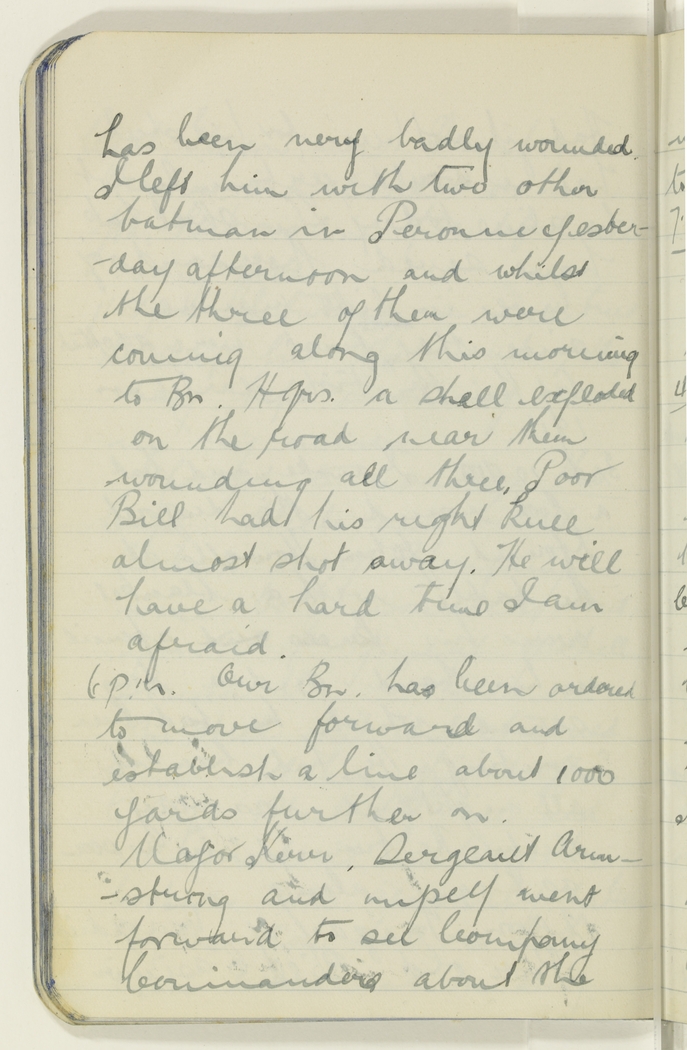 has been very badly wounded.
I left him with two other
batman in Peronne yester-
-day afternoon and whilst
the three of them were
coming along this morning
to Bn. Hqrs. a shell exploded
on the road near them
wounding all three, Poor
Bill had his right knee
almost shot away. He will
have a hard time I am
afraid.
6 p.m. Our Bn. has been ordered
to move forward and
establish a line about 1000
yards further on.
Major , Sergeant Arm-
-strong and myself went
forward to see Company
Commanders about the